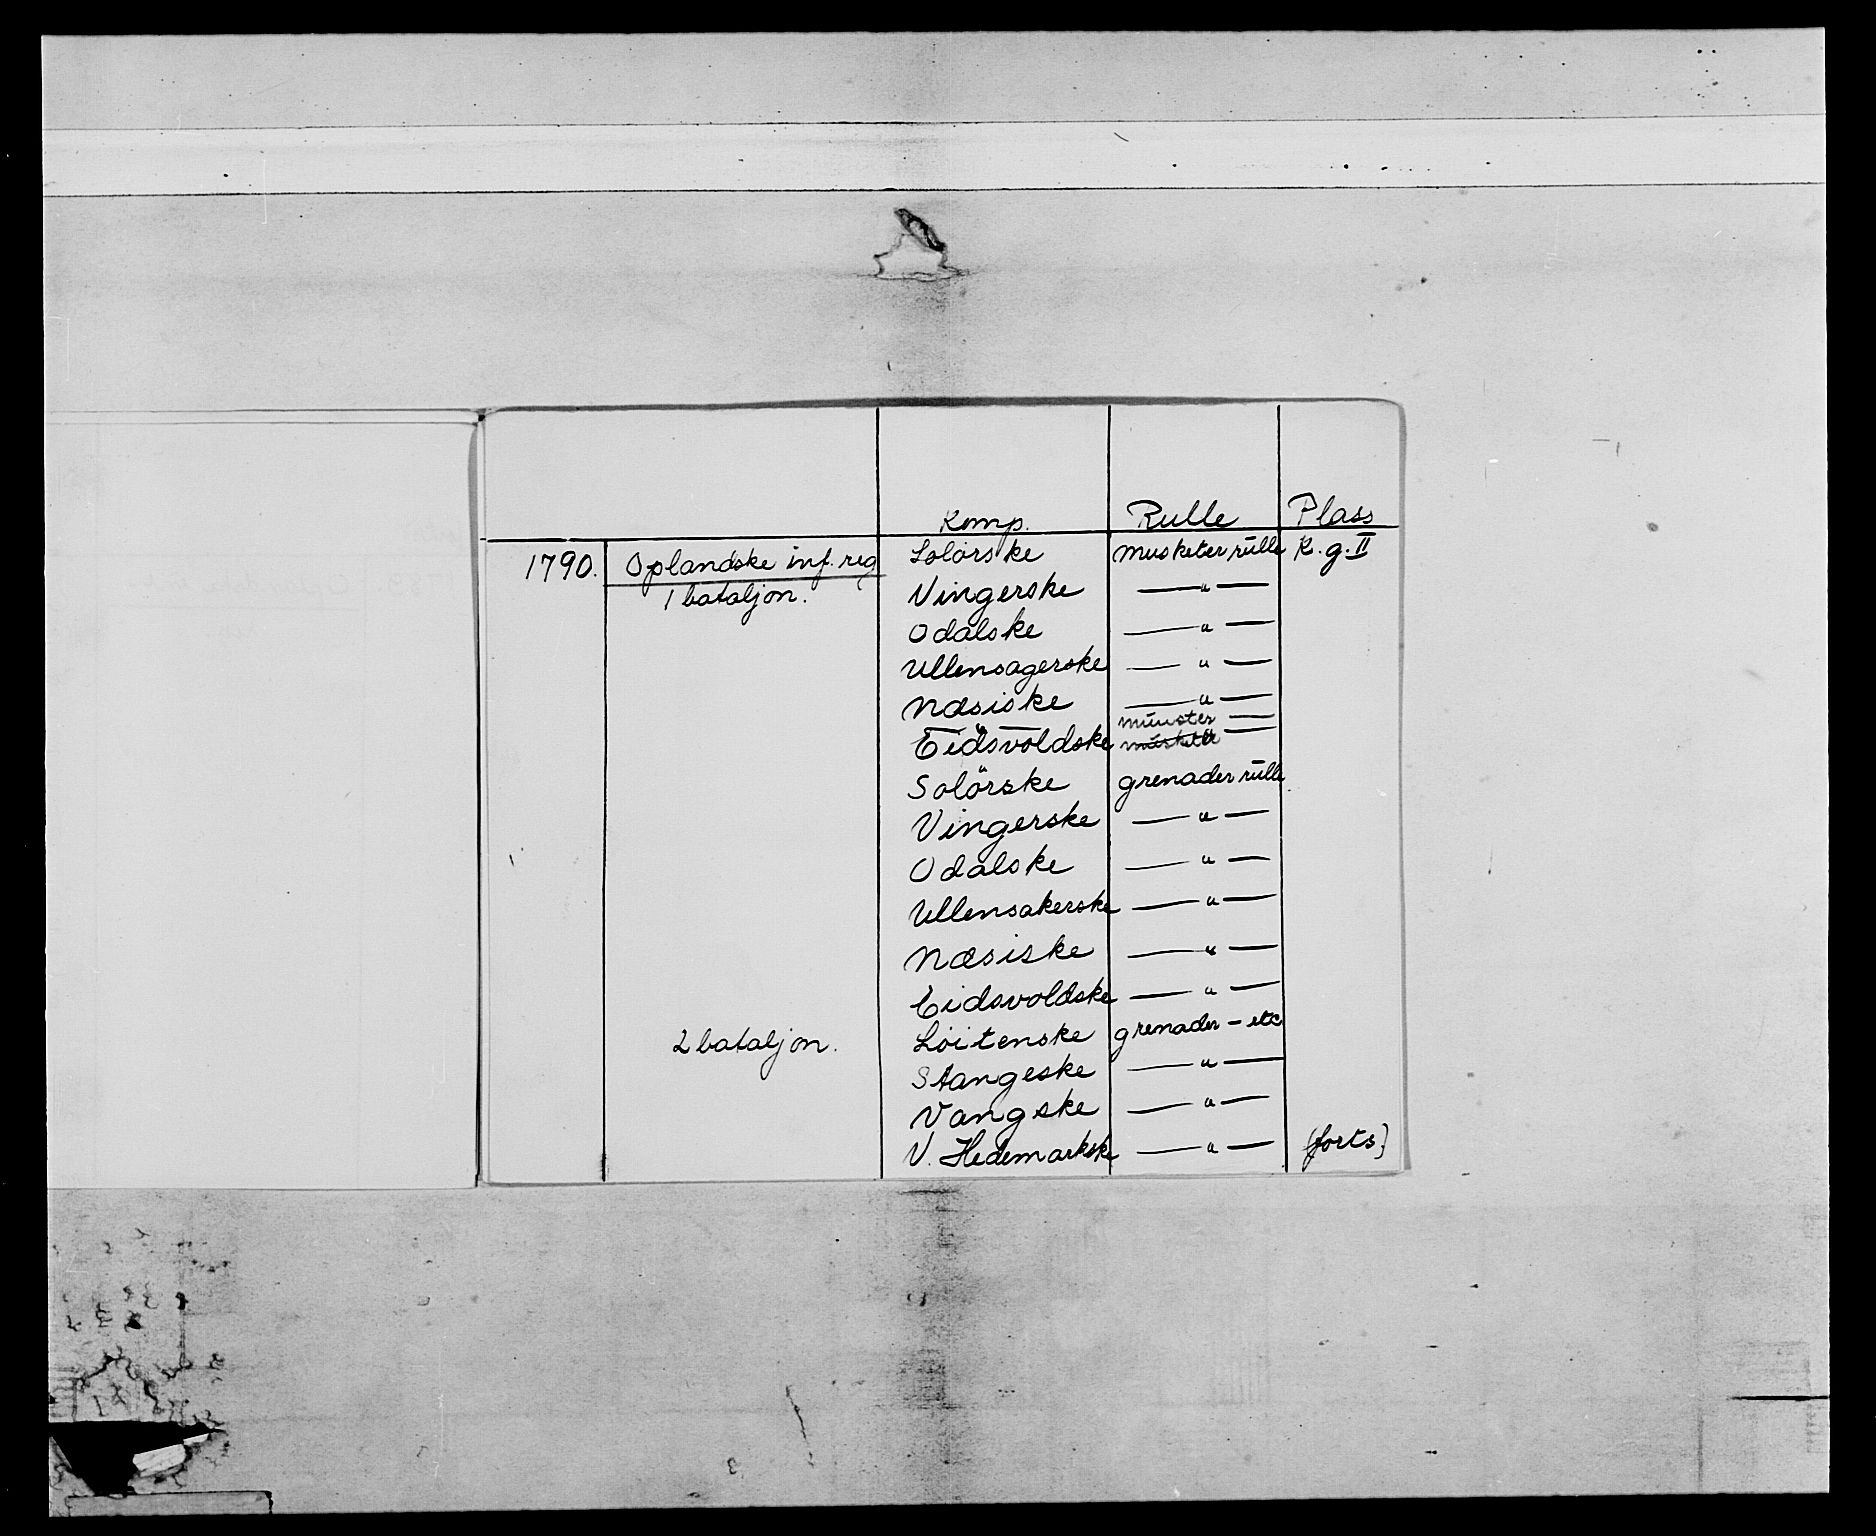 Komp. Rulle Plass
1790. Oplandske inf. reg Solørske musketer rulle K.g. II
1 bataljon. Vingerske — " —
Odalske — " —
Ullensagerske — " —
Næsiske — " —
" — münster —
Eidsvoldske musketer —
Solörske grenader rulle
Vingerske — " —
Odalske — " —
Ullensakerske — " —
Næsiske — " —
Eidsvoldske — " —
2 bataljon. Löitenske grenader — etc
Stangeske — " —
Vangske — " —
V. Hedemarkske — " — (forts)